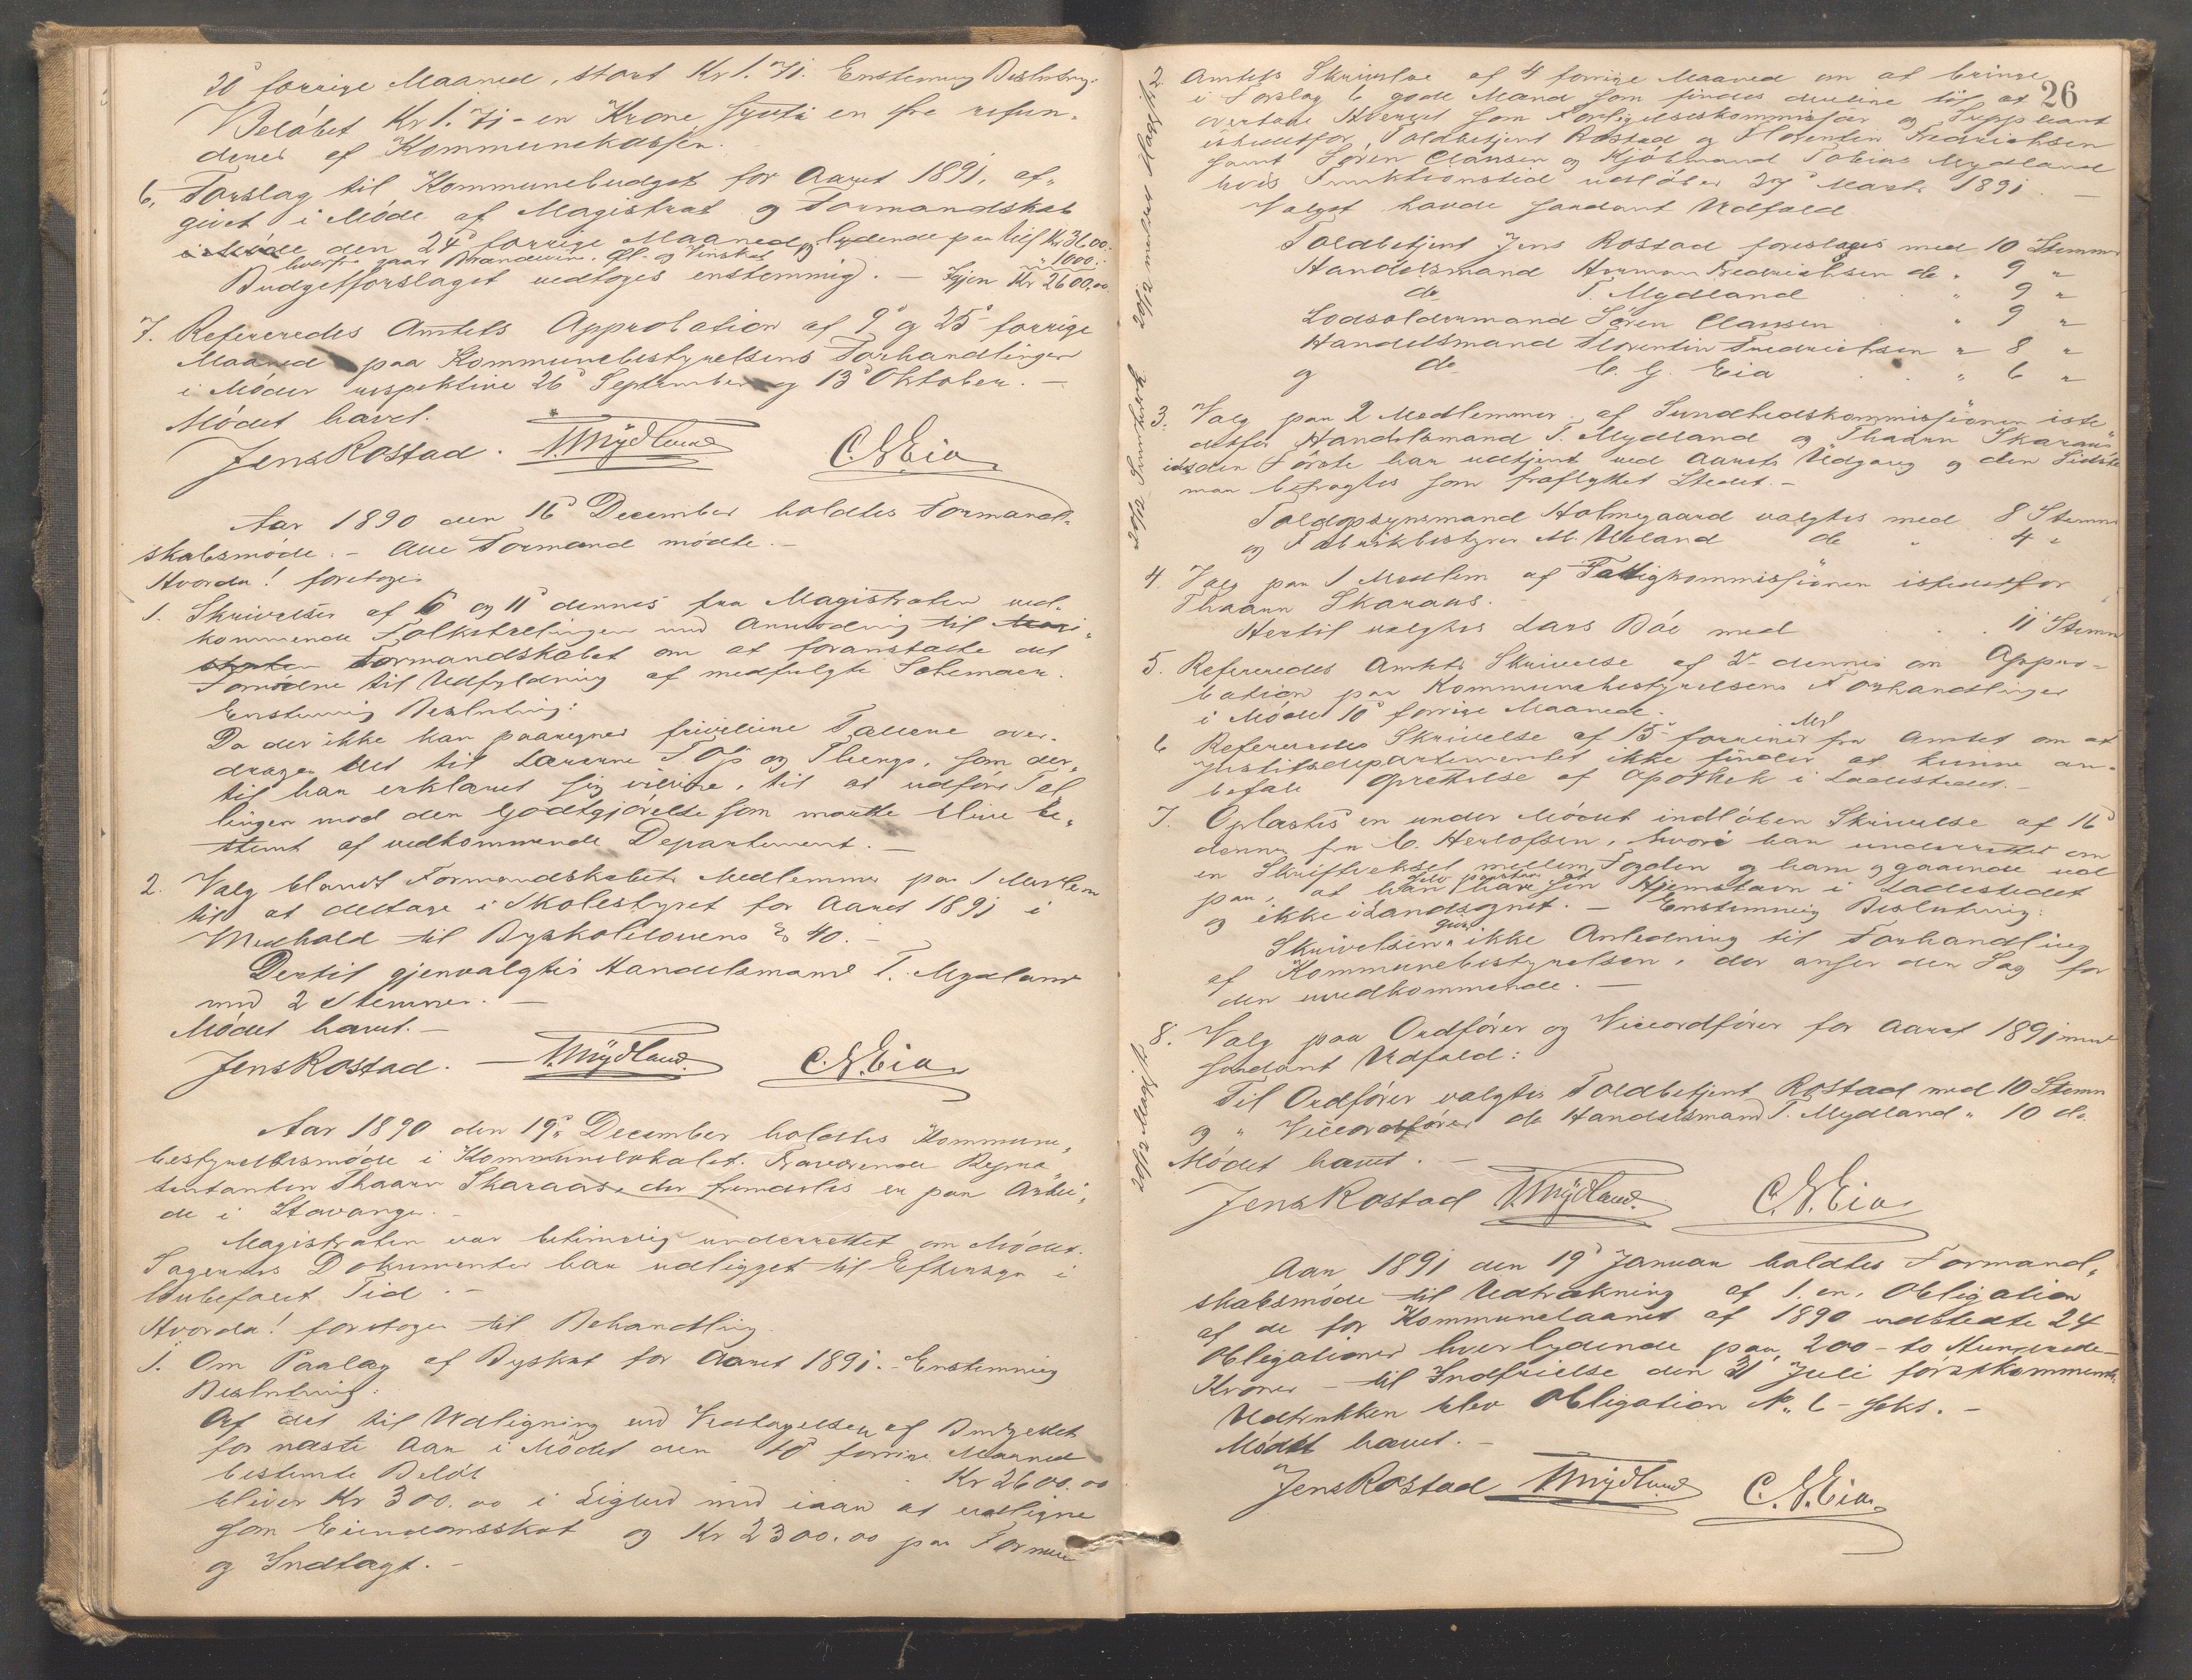 20de forrige Maaned, stort Kr 1.71. Enstemmig Beslutning:
Beløbet Kr 1.71 - en Krone sytti en øre refun-
deres af Kommunekassen.
6. Forslag til Kommunebudget for Aaret 1891, af-
givet i Møde af Magistrat og Formandskab
den 24de forrige Maaned, lydende paa tils Kr 3600.
hvorfra gaar Brændevin, Øl- og Vinskat " 1000.
Budgetforslaget vedtoges enstemmig. — Igjen Kr 2600.00
7. Refereredes Amtets Approbation af 9de og 25de forrige
Maaned paa Kommunebestyrelsens Forhandlinger
i Møder respektive 26de September og 13de Oktober. —
Mødet hævet.
Jens Rostad. T. Mydland C. G. Eia
Aar 1890 den 16de December holdtes Formand-
skabsmøde. — Alle Formænd mødte. —
Hvorda! foretoges
1. Skrivelser af 6 og 11te dennes fra Magistraten ved-
kommende Folketællingen med Anmodning til
Formandskabet om at foranstalte det
Fornødne til Udfyldning af medfulgte Schemaer.
Enstemmig Beslutning:
Da der ikke kan paaregnes frivillige Tællere over-
drages det til Lærerne og som der-
til har erklæret sig villige, til at udføre Tæl-
lingen mod den Godtgjørelse som maatte blive be-
stemt af vedkommende Departement. —
2. Valg blandt Formandskabets Medlemmer paa 1 Medlem
til at deltage i Skolestyret for Aaret 1891 i
Medhold til Byskolelovens § 40. —
Dertil gjenvalgtes Handelsmand T. Mydland
med 2 Stemmer. —
Mødet hævet. —
Jens Rostad. — T. Mydland. C. G. Eia
Aar 1890 den 19de December holdtes Kommune-
bestyrelsesmøde i Kommunelokalet. Fraværende Repræ-
sentanten Thaarn Skaraas, der fremdeles er paa Arbei-
de i Stavanger. —
Magistraten var betimelig underrettet om Mødet.
Sagernes Dokumenter har udligget til Eftersyn i
lovbefalet Tid. —
Hvorda! foretoges til Behandling
1. Om Paalæg af Byskat for Aaret 1891. - Enstemmig
Beslutning:
Af det til Udligning ved Vedtagelsen af Budgettet
for næste Aar i Mødet den 10de forrige Maaned
bestemte Beløb Kr 2600.00
bliver Kr 300.00 i Lighed med iaar at udligne
som Eiendomsskat og Kr 2300.00 paa Formue
og Indtægt. —
26
2. Amtets Skrivelse af 4 forrige Maaned om at bringe
i Forslag 6 gode Mænd som findes duelige til at
overtage Hvervet som Forligelseskommissær og Suppleant
istedetfor Toldbetjent Rostad og Florentin Fredrichsen
samt Søren Clausen og Kjøbmand Tobias Mydland
hvis Funktionstid udløber 27de Marts 1891. —
Valget havde saadant Udfald
Toldbetjent Jens Rostad foreslages med 10 Stemmer
Handelsmand Herman Fredrichsen do " 9 "
do T. Mydland " 9 "
Lodsoldermand Søren Clausen " 9 "
Handelsmand Florentin Fredrichsen " 8 "
og do C. G. Eia " 6 "
3. Valg paa 2 Medlemmer af Sundhedskommissionen iste-
detfor Handelsmand T. Mydland og Thaarn Skaraas
idet den Første har udtjent ved Aarets Udgang og den Sidste
maa betragtes som fraflyttet Stedet. —
Toldopsynsmand Holmegaard valgtes med 8 Stemmer
og Fabrikbestyrer M. Ueland do " 4 "
4. Valg paa 1 Medlem af Fattigkommissionen istedetfor
Thaarn Skaraas.
Hertil valgtes Lars Bøe med 11 Stemm
5. Refereredes Amtets Skrivelse af 2den dennes om Appro-
bation paa Kommunebestyrelsens Forhandlinger
i Møde 10de forrige Maaned.
6 Refereredes Skrivelse af 15de forrige Md fra Amtet om at
Justitsdepartementet ikke finder at kunne an-
befale Oprettelse af Apothek i Ladestedet. —
7. Oplæstes en under Mødet indløben Skrivelse af 16de
dennes fra C. Herlofsen, hvori han underretter om
en Skriftveksel mellem Fogden og ham gaaende ud
paa, at han har sin Hjemstavn i Ladestedet
og ikke i Landsognet. — Enstemmig Beslutning:
Skrivelsen giver ikke Anledning til Forhandling
af Kommunebestyrelsen, der anser den Sag for
den uvedkommende. —
8. Valg paa Ordfører og Viceordfører for Aaret 1891 med
saadant Udfald:
Til Ordfører valgtes Toldbetjent Rostad med 10 Stemm
og " Viceordfører do Handelsmand T. Mydland " 10 do.
Mødet hævet. —
Jens Rostad T. Mydland. C. G. Eia
Aar 1891 den 19de Januar holdtes Formand-
skabsmøde til Udtrækning af 1. en. Obligation
af de for Kommunelaanet af 1890 udstedte 24
Obligationer hver lydende paa 200 - to Hundrede
Kroner — til Indfrielse den 31 Juli førstkommende.
Udtrukken blev Obligation No. 6 - seks. —
Mødet hævet. —
Jens Rostad T. Mydland C. G. Eia